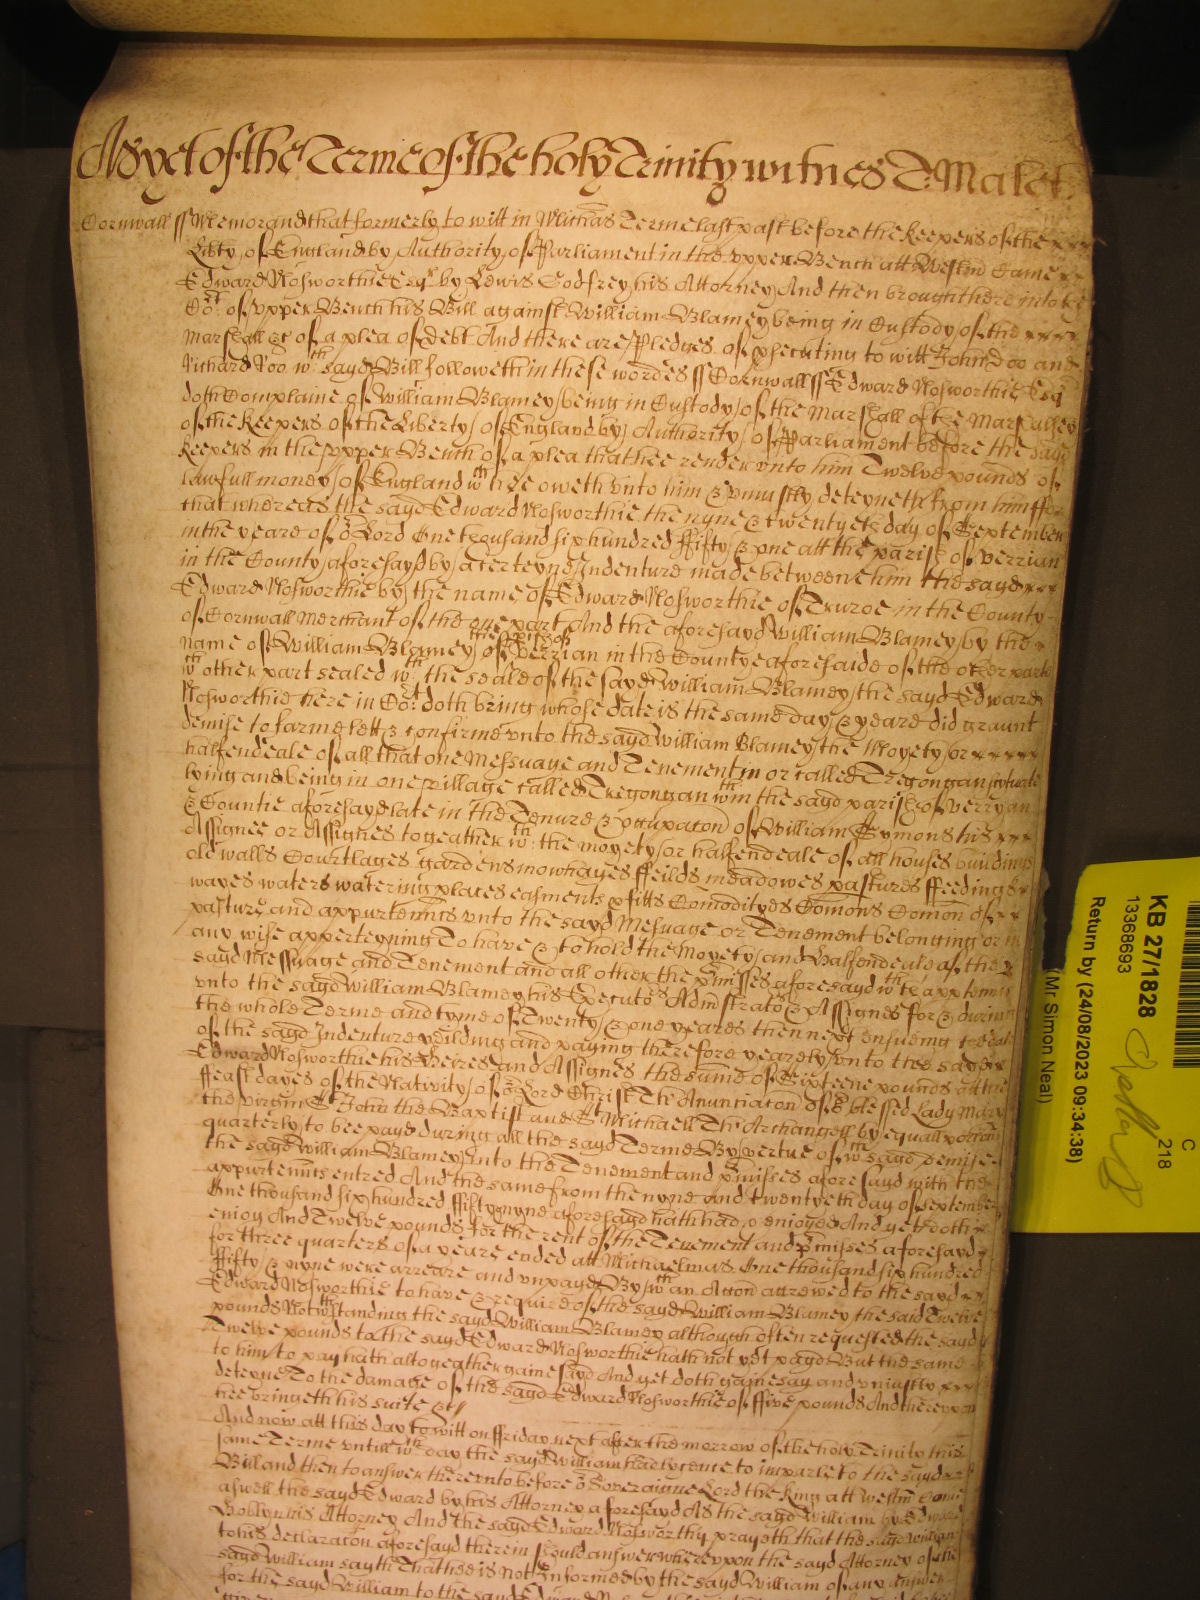 As yet of the Terme of the holy Trinity witnes T: Malet
Cornwall ss Memorand that formerly to witt in Michas Terme last past before the Keepers of the
Libty of England by Authority of Parliament in the upper Bench att Westm Came
Edward Nosworthie Esqr by Lewis Godfrey his Attorney And then brought here into ye
Cort of upper Bench his Bill against William Blamey being in Custody of the
Marshall &c of a plea of debt And there are Pledges of psecuting to witt John Doo and
Richard Roo wth sayd Bill followeth in these wordes ss Cornwall ss Edward Nosworthie Esqr
doth Complaine of William Blamey being in Custody of the Marshall of the Marshalsey
of the Keepers of the Liberty of England by Authority of Parliament before the sayd
Keepers in the upper Bench of a plea that hee render unto him Twelve pounds of
lawfull money of England wch hee oweth unto him & uniustly deteyneth from him ffor
that whereas the sayd Edward Nosworthie the nyne & twentyeth day of September
in the yeare of or Lord One thousand six hundred ffifty & one att the parish of verrian
in the County aforesayd by a certeyne Indenture made betweene him the sayd
Edward Nosworthie by the name of Edward Nosworthie of Truroe in the County
of Cornwall Merchant of the one part And the aforesayd William Blamey by the
name of William Blamey of the pish of verrian in the Countye aforesaide of the other parte
wth other part sealed wth the seale of the sayd William Blamey the sayd Edward
Nosworthie here in Cort doth bring whose date is the same day & yeare did graunt
demise to farme lett & confirme unto the sayd William Blamey the Moyety or
halfendeale of all that one Messuage and Tenement in or called Tregongan scituate
lying and being in one village called Tregongan wthin the sayd parish of verryan
& Countie aforesayd late in the Tenure & occupacon of William Symons his
Assignee or Assignes togeather wth the moyety or halfendeale of all houses buildings
old walls Courtlages gardens mowhayes ffeilds meadowes pastures ffeedings
wayes waters watering places easments pfitts Comodityes Comons Comon of
pasture and appurtenncs unto the sayd Messuage or Tenement belonging or in
any wise apperteyning To have & to hold the Moyety and Halfendeale of the
sayd Messuage and Tenement and all other the pmisses aforesayd wth the apptenncs
unto the sayd William Blamey his Executors Administrators & Assignes for & during
the whole Terme and tyme of Twenty & one yeares then next ensueing the date
of the sayd Indenture yeilding and paying therefore yearely unto the sayd
Edward Nosworthie his Heires and Assignes the summe of Sixteene pounds att the
ffeast dayes of the Nativity of or Lord Christ The Anunciacon of ye blessed Lady Mary
the virgin St John the Baptist and St Michaell Th' Archangell by equall porcons
quarterly to bee payd during all the sayd Terme By vertue of wch sayd demise
the sayd William Blamey into the Tenement and pmisses aforesayd with the
appurtenncs entred And the same from the nyne and twentyeth day of September
One thousand six hundred ffifty nyne aforesayd hath had & enioyed And yet doth
enioy And Twelve pounds for the rent of the Tenement and pmisses aforesayd
for three quarters of a yeare ended att Michaelmas One thousand six hundred
ffifty & nyne were arreare and unpayd By wch an Accon accrewed to the sayd
Edward Nosworthie to have & require of the sayd William Blamey the said Twelve
pounds Notwthstanding the sayd William Blamey although often requested the sayd
Twelve pounds to the sayd Edward Nosworthie hath not yet payd But the same
to him to pay hath altogeather gainesayd And yet doth gainesay and uniustly
deteyne To the damage of the sayd Edward Nosworthie of ffive pounds And thereupon
hee bringeth his suite &c
And now att this day to witt on ffriday next after the morrow of the holy Trinity this
same Terme untill wch day the sayd William had lycence to imparle to the sayd
Bill and then to answer thereunto before or Soveraigne Lord the King att Westm Came
aswell the sayd Edward by his Attorney aforesayd As the sayd William by Edward
his Attorney And the sayd Edward Nosworthy prayeth that the sayd William
to his declaracon aforesayd therein should answer whereupon the sayd Attorney of the
sayd William sayth That hee is not Informed by the sayd William of any answer
for the sayd William to the sayd Edward
KB 27/1828
13368693
Return by (24/08/2023 09:34:38)
(Mr Simon Neal)
C
218